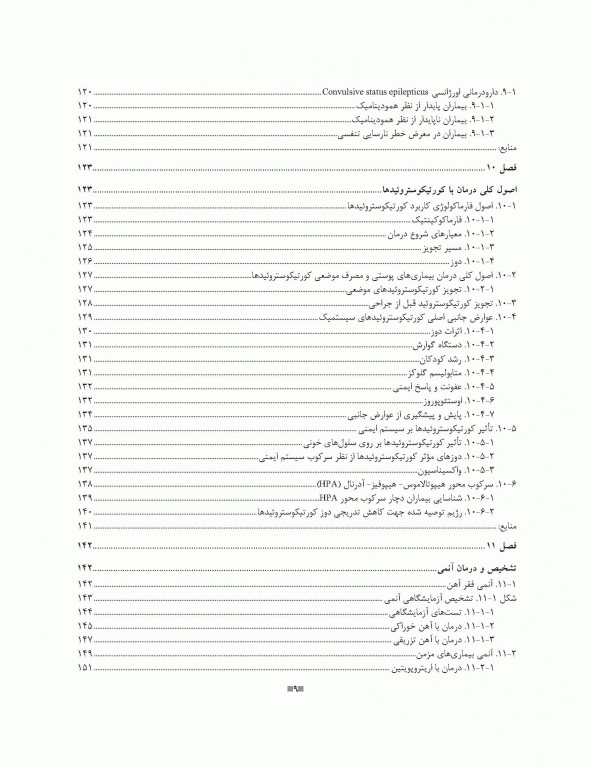 ۹-۱. دارودرمانی اورژانسی Convulsive status epilepticus ۱۲۰
۹-۱-۱. بیماران پایدار از نظر همودینامیک ۱۲۰
۹-۱-۲. بیماران ناپایدار از نظر همودینامیک ۱۲۱
۹-۱-۳. بیماران در معرض خطر نارسایی تنفسی ۱۲۱
منابع: ۱۲۱
فصل ۱۰ ۱۲۳
اصول کلی درمان با کورتیکوستروئیدها ۱۲۳
۱۰-۱. اصول فارماکولوژی کاربرد کورتیکوستروئیدها ۱۲۳
۱۰-۱-۱. فارماکوکینتیک ۱۲۳
۱۰-۱-۲. معیارهای شروع درمان ۱۲۴
۱۰-۱-۳. مسیر تجویز ۱۲۵
۱۰-۱-۴. دوز ۱۲۶
۱۰-۲. اصول کلی درمان بیماری‌های پوستی و مصرف موضعی کورتیکوستروئیدها ۱۲۷
۱۰-۲-۱. تجویز کورتیکوستروئیدهای موضعی ۱۲۷
۱۰-۳. تجویز کورتیکوستروئید قبل از جراحی ۱۲۸
۱۰-۴. عوارض جانبی اصلی کورتیکوستروئیدهای سیستمیک ۱۲۹
۱۰-۴-۱. اثرات دوز ۱۳۰
۱۰-۴-۲. دستگاه گوارش ۱۳۱
۱۰-۴-۳. رشد کودکان ۱۳۱
۱۰-۴-۴. متابولیسم گلوکز ۱۳۱
۱۰-۴-۵. عفونت و پاسخ ایمنی ۱۳۲
۱۰-۴-۶. اوستئوپوروز ۱۳۲
۱۰-۴-۷. پایش و پیشگیری از عوارض جانبی ۱۳۴
۱۰-۵. تأثیر کورتیکوستروئیدها بر سیستم ایمنی ۱۳۵
۱۰-۵-۱. تأثیر کورتیکوستروئیدها بر روی سلول‌های خونی ۱۳۷
۱۰-۵-۲. دوزهای مؤثر کورتیکوستروئیدها از نظر سرکوب سیستم ایمنی ۱۳۷
۱۰-۵-۳. واکسیناسیون ۱۳۷
۱۰-۶. سرکوب محور هیپوتالاموس- هیپوفیز- آدرنال (HPA) ۱۳۸
۱۰-۶-۱. شناسایی بیماران دچار سرکوب محور HPA ۱۳۹
۱۰-۶-۲. رژیم توصیه شده جهت کاهش تدریجی دوز کورتیکوستروئیدها ۱۴۰
منابع: ۱۴۱
فصل ۱۱ ۱۴۲
تشخیص و درمان آنمی ۱۴۲
۱۱-۱. آنمی فقر آهن ۱۴۲
شکل ۱-۱۱. تشخیص آزمایشگاهی آنمی ۱۴۳
۱۱-۱-۱. تست‌های آزمایشگاهی ۱۴۴
۱۱-۱-۲. درمان با آهن خوراکی ۱۴۵
۱۱-۱-۳. درمان با آهن تزریقی ۱۴۷
۱۱-۲. آنمی بیماری‌های مزمن ۱۴۹
۱۱-۲-۱. درمان با اریتروپویتین ۱۵۱
۹